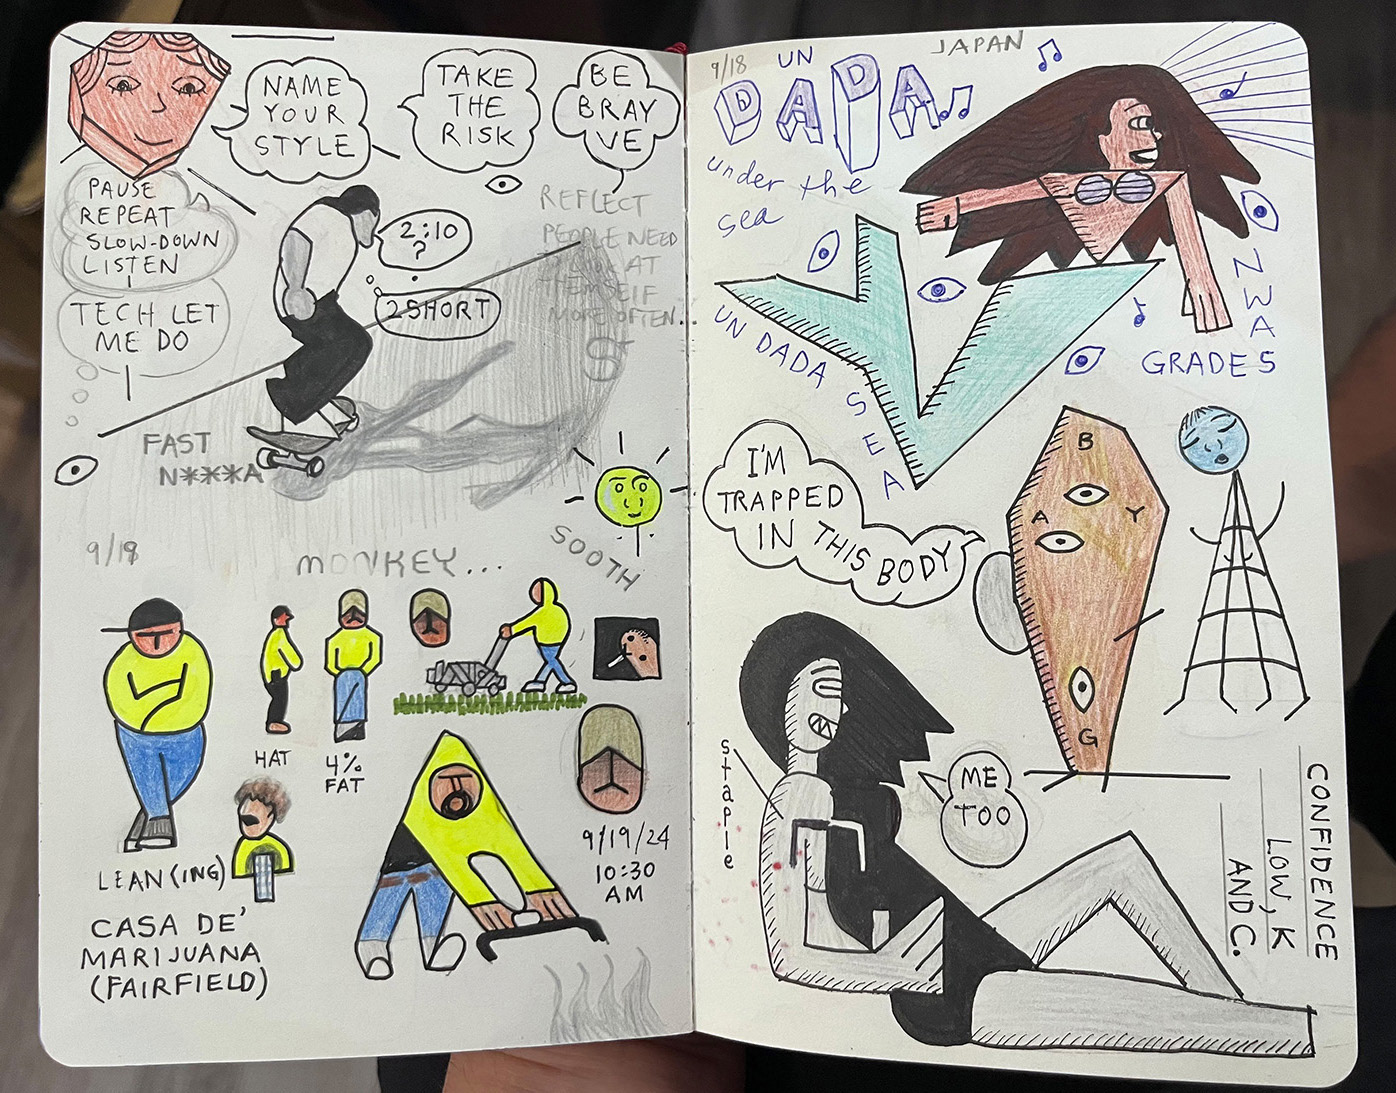 NAME
YOUR
STYLE
TAKE
THE
RISK
BE
BRAY
VE
PAUSE
REPEAT
SLOW-DOWN
LISTEN
TECH LET
ME DO
2:10
?
2SHORT
REFLECT
PEOPLE NEED
AT
THEMSELF
MORE OFTEN...
FAST
N***A
SOOTH
9/18
MONKEY...
HAT
4%
FAT
LEAN(ING)
CASA DE'
MARIJUANA
(FAIRFIELD)
9/19/24
10:30
AM
9/18
UN
DADA
JAPAN
under the
sea
UN DADA SEA
GRADES
I'M
TRAPPED
IN THIS BODY
B
A
Y
G
staple
ME
TOO
CONFIDENCE
LOW, K
AND C.